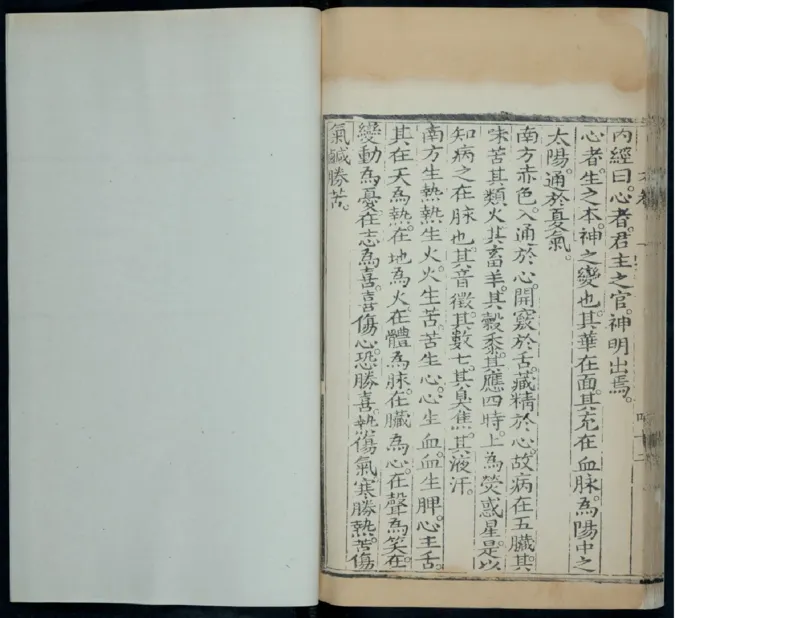 內經曰。心者。君主之官。神明出焉。
心者。生之本。神之變也。其華在面。其充在血脉。為陽中之
太陽。通於夏氣。
南方赤色。入通於心。開竅於舌。藏精於心。故病在五臟。其
味苦。其類火。其畜羊。其穀黍。其應四時。上為熒惑星。是以
知病之在脉也。其音徵。其數七。其臭焦。其液汗。
南方生熱。熱生火。火生苦。苦生心。心生血。血生脾。心主舌。
其在天為熱。在地為火。在體為脉。在臟為心。在聲為笑。在
變動為憂。在志為喜。喜傷心。恐勝喜。熱傷氣。寒勝熱。苦傷
氣。鹹勝苦。